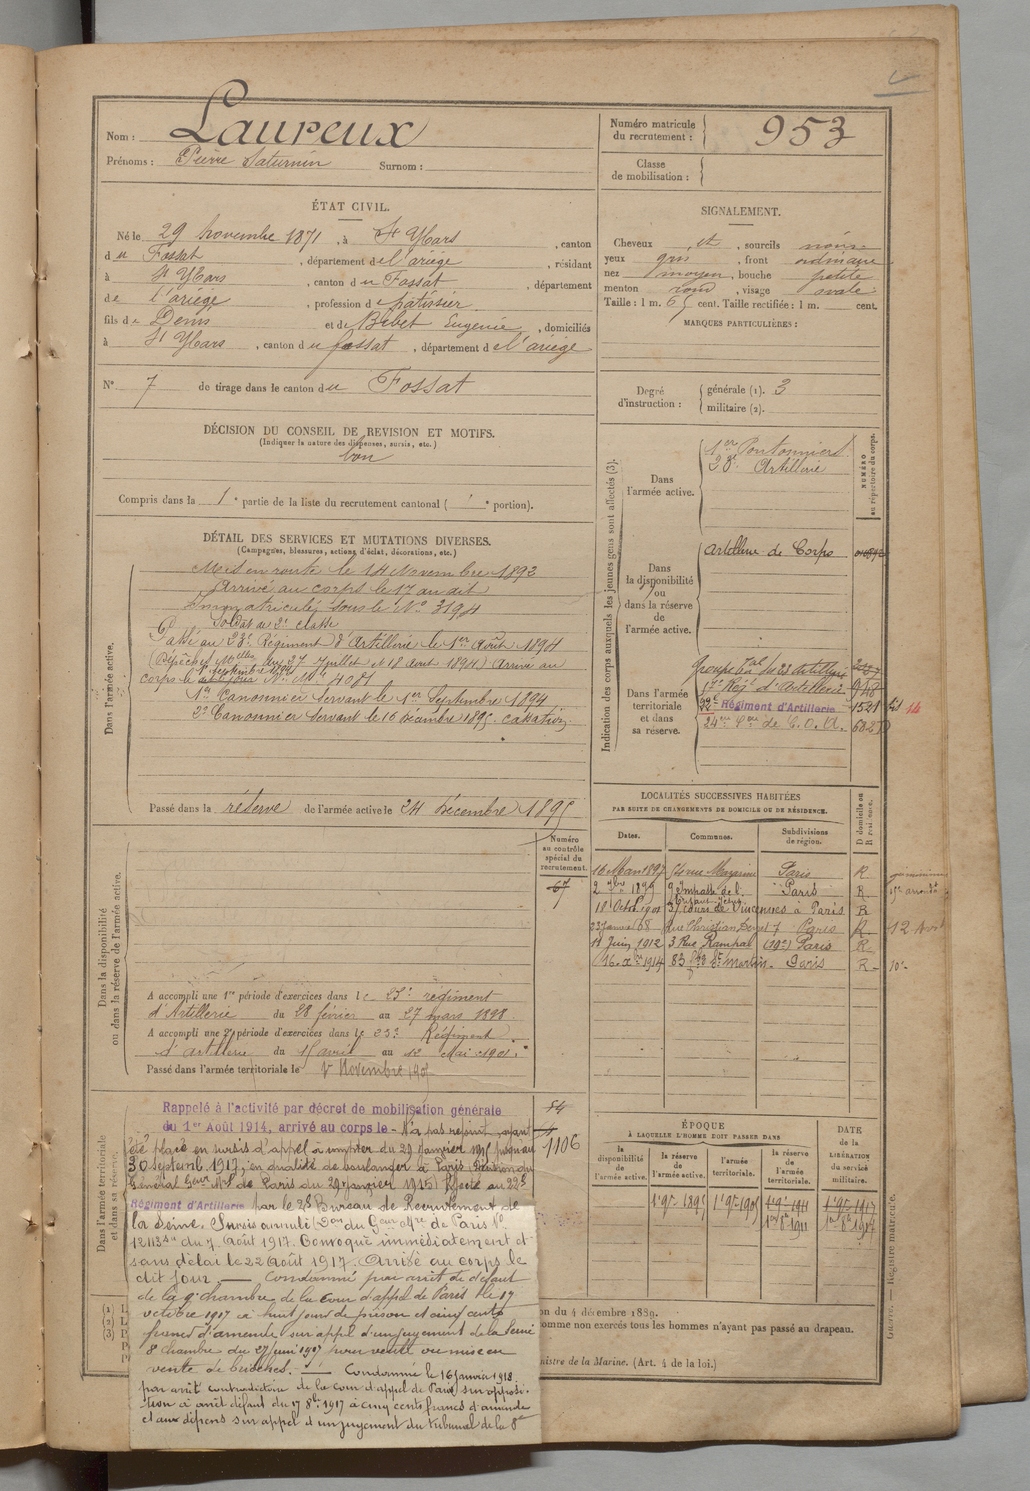 Nom : Laureux
Prénoms : Pierre Saturnin Surnom :
Numéro matricule du recrutement : 953
Classe de mobilisation :
ÉTAT CIVIL.
Né le 29 Novembre 1871, à St Ybars, canton
du Fossat, département de l'ariege, résidant
à St Ybars, canton du Fossat, département
de l'ariège, profession de pâtissier
fils de Denis et de Bebet Eugenie, domiciliés
à St Ybars, canton du fossat, département de l'ariège
N° 7 de tirage dans le canton du Fossat
DÉCISION DU CONSEIL DE REVISION ET MOTIFS.
(Indiquer la nature des dispenses, sursis, etc.)
bon
Compris dans la 1e partie de la liste du recrutement cantonal ( e portion).
SIGNALEMENT.
Cheveux et, sourcils noirs
yeux gris, front ordinaire
nez moyen, bouche petite
menton rond, visage ovale
Taille : 1 m. 65 cent. Taille rectifiée : 1 m. cent.
MARQUES PARTICULIÈRES :
Degré d'instruction : générale (1). 3
militaire (2).
DÉTAIL DES SERVICES ET MUTATIONS DIVERSES.
(Campagnes, blessures, actions d'éclat, décorations, etc.)
Dans l'armée active.
Mis en route le 14 Novembre 1892
Arrivé au corps le 17 au dit
Immatriculé sous le N° 3194
Soldat de 2e classe
Passé au 23e Régiment d'Artillerie le 1er Août 1894
(Dépêches Mlles des 27 Juillet et 18 Août 1894) Arrivé au
corps le 1er septembre 1894 N° Mle 4081
1er Canonnier Servant le 1er Septembre 1894
2e Canonnier Servant le 16 décembre 1895 cassation
Passé dans la réserve de l'armée active le 24 Décembre 1895
Indication des corps auxquels les jeunes gens sont affectés (3).
NUMÉRO au répertoire du corps.
Dans l'armée active.
1er Pontonniers
28e Artillerie
Dans la disponibilité ou dans la réserve de l'armée active.
Artillerie de Corps
Dans l'armée territoriale et dans sa réserve.
Groupe Tal du 23 Artillerie
Régt d'Artillerie 948
22e Régiment d'Artillerie 1521
24eme Son de C. O. A.
LOCALITÉS SUCCESSIVES HABITÉES
PAR SUITE DE CHANGEMENTS DE DOMICILE OU DE RÉSIDENCE.
Dates. Communes. Subdivisions de région. D domicile ou R résidence.
16 Mars 1897 rue Mazarine Paris R
1899 9 Impasse de l'Enfant-Jésus Paris R
18 Octob. 1901 37 Cours de Vincennes à Paris R
23 Janvier 08 Rue Christian Dewet 7 Paris R 12
11 Juin 1912 3 Rue Rampal (19e) Paris R
16 Xbre 1914 83 fbg St Martin Paris R 10e
Dans la disponibilité ou dans la réserve de l'armée active.
Numéro au contrôle spécial du recrutement.
67
A accompli une 1re période d'exercices dans le 23e régiment
d'Artillerie du 28 février au 27 mars 1898
A accompli une 2e période d'exercices dans le 23e Régiment
d'artillerie du 15 avril au 12 Mai 1901
Passé dans l'armée territoriale le 1er Novembre 1905
Dans l'armée territoriale et dans sa réserve.
1106
Rappelé à l'activité par décret de mobilisation générale
du 1er Août 1914, arrivé au corps le - N'a pas rejoint, ayant
été placé en sursis d'appel à compter du 29 Janvier 1915 jusqu'au
30 septemb. 1917, en qualité de boulanger à Paris. Décision du
Général Gouv. Mre de Paris du 29 janvier 1915. Affecté au 22e
Régiment d'Artillerie par le 2e Bureau de Recrutement de
la Seine. Sursis annulé Don du Gouv. Mre de Paris N°
du 7 Août 1917. Convoqué immédiatement et
sans délai le 22 Août 1917. Arrivé au corps le
dit jour. — Condamné par arrêt de défaut
de la 9e chambre de la Cour d'appel de Paris le 17
octobre 1917 à huit jours de prison et cinq cents
francs d'amende sur appel d'un jugement de la Seine
8 chambre du 27 juin 1917 pour vente ou mise en
vente de brioches. — Condamné le 16 Janvier 1918
par arrêt contradictoire de la cour d'appel de Paris sur opposi-
tion à arrêt défaut du 17 8bre 1917 à cinq cents francs d'amende
et aux dépens sur appel d'un jugement du tribunal de la 8e
ÉPOQUE
À LAQUELLE L'HOMME DOIT PASSER DANS
la disponibilité de l'armée active. la réserve de l'armée active. l'armée territoriale. la réserve de l'armée territoriale.
DATE de la LIBÉRATION du service militaire.
1er 9bre 1895 1er 9bre 1905 1er 9bre 1911 1er 9bre 1917
on du 4 décembre 1889.
omme non exercés tous les hommes n'ayant pas passé au drapeau.
nistre de la Marine. (Art. 4 de la loi.)
— Registre matricule.